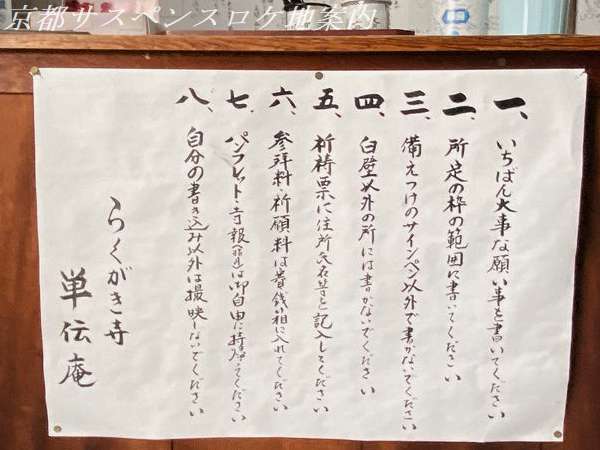 京都サスペンスロケ地案内
一、いちばん大事な願い事を書いてください
二、所定の枠の範囲に書いてください
三、備えつけのサインペン以外で書かないでください
四、白壁以外の所には書かないでください
五、祈祷票に住所氏名等を記入してください
六、参拝料・祈願料は賽銭箱に入れてください
七、パンフレット・寺報は御自由に持帰ってください
八、自分の書き込み以外は撮映しないでください
らくがき寺
単伝庵